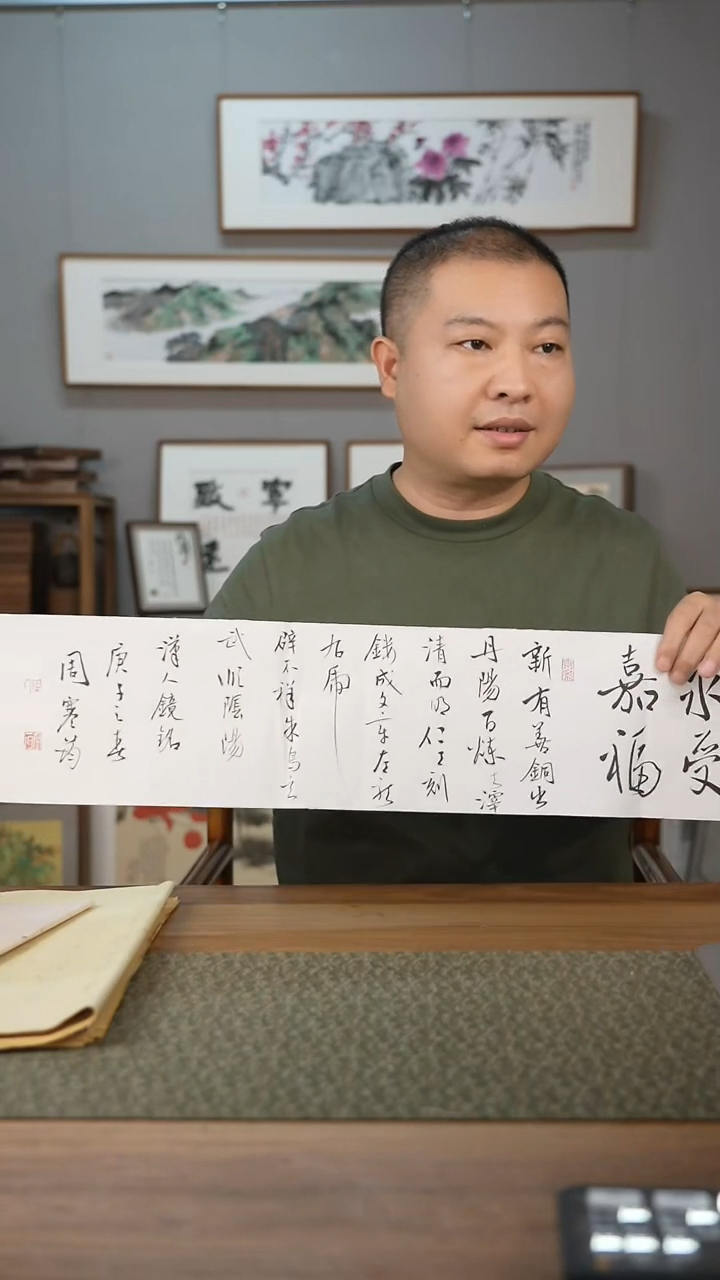 永受
嘉福
新有善銅出
丹陽百煉之滓
清而明仁工刻
鏤成文章左龍
右虎
辟不祥朱鳥玄
武順陰陽
漢人鏡銘
庚子之春
周寒筠
寧致
遠